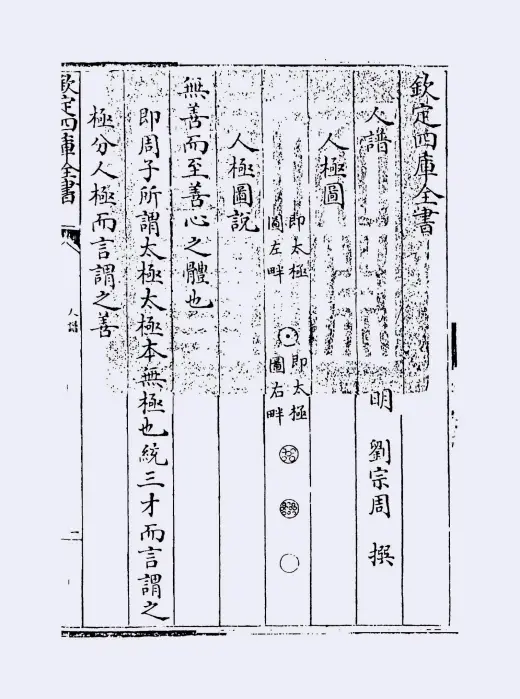 欽定四庫全書
人譜
明 劉宗周 撰
人極圖
即太極
圖左畔
即太極
圖右畔
人極圖說
無善而至善心之體也
即周子所謂太極太極本無極也統三才而言謂之
極分人極而言謂之善
欽定四庫全書
人譜
二